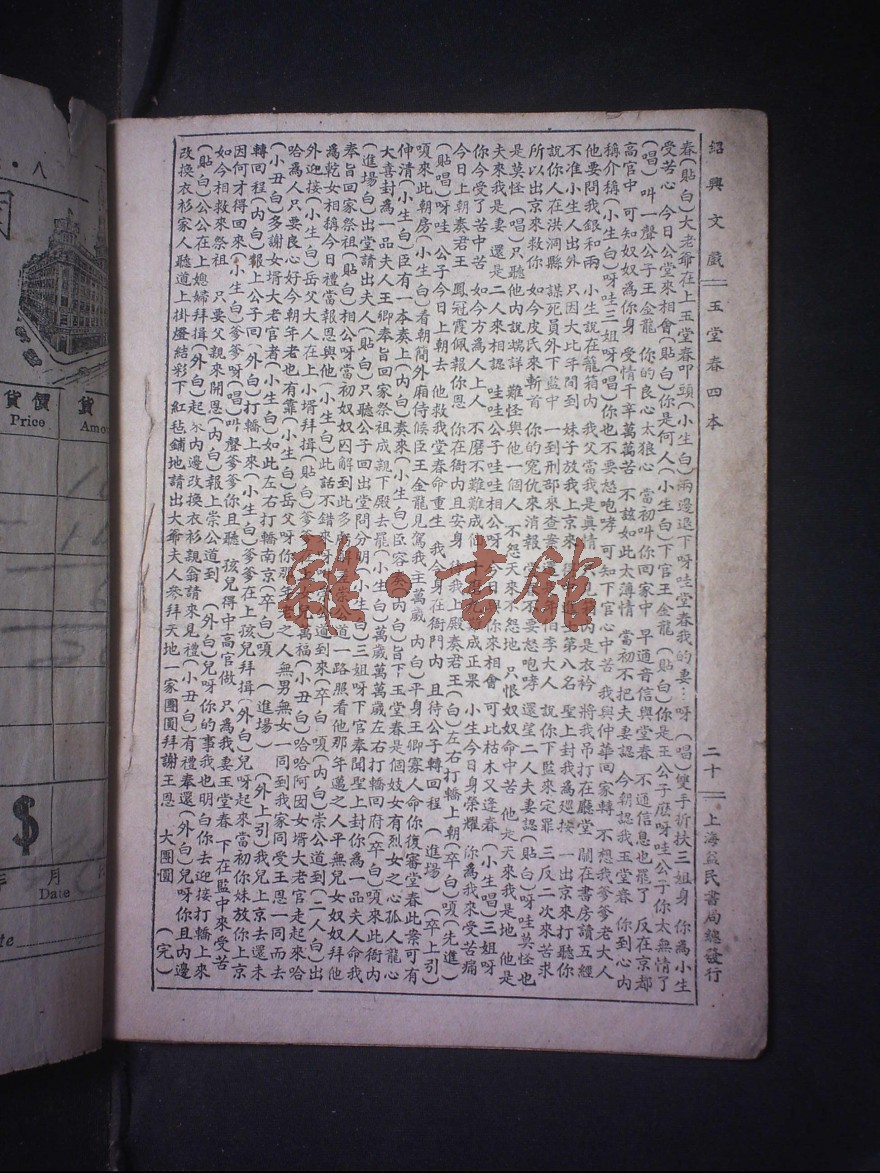 紹興文戲 玉堂春四本 二十 上海益民書局總發行
春(貼白)大老爺在上玉堂春叩頭(小生白)兩邊退下呀哇堂春我的妻…呀(唱)雙手折扶三姐身 你為小生
受苦心 今日公堂來相會(貼白)你是何人(小生白)下官王金龍(貼白)你是王公子麽呀哇公子你太無情了
(唱)叫一聲公子王金龍 你的良心太狠心 當初叫你回家中 早通音信與堂春 不通信息也罷了 反在京都
高官中 可知奴奴為你身 受情千辛萬萬苦 不該如此太薄情 當初不把夫妻認 今朝認我玉堂春 你到心內
稱介稱(小生白)呀哇三姐呀(唱)你也不要怒咆哮 可知下官心中苦 我與仲華回家轉 不想我爹爹老大人
他要問我銀和兩 小生說在籠箱內 我父當我是真情 內是衣衿 將我吊打在廳堂 關在書房讀五經
不准小生人出外 只因大比年間到 妹子放我上京來 第八名 聖上封我為巡按 一出京來打聽你
說你人在洪洞縣 謀死員外下監中 一到刑部來查案 李大人 說你下監來定罪 三反二次來苦求
所以出京來救你 如今皮氏來斬首 你的寃仇來消報 不要怒咆哮 還望二人夫妻認(貼白)呀哇莫怪也
是莫怪(唱)只聽他內說端詳 難怪與他一個人 不怨天來不怨地 只恨奴奴命中苦 他是天來我是地 他是
夫來我是妻 還是二人來相認 哇哇公子哇哇相公呀 與你來相會 可比枯木又逢春(小生唱)三姐呀
你今受了苦中苦 如今方為人上人 不磨不難難成 成正果 小生今日身榮耀 你為我來受苦痛
今日上朝奏君王 鳳冠霞佩報你恩 你在衙內且安身 我上殿奏君王(白)左右打轎上朝(卒白)嗄(先進)
(貼唱)呀哇 公子今日上朝去 他救我堂春命重生 我今身在衙門內 且待公子轉回程(進場)(卒上引)
嗄來此朝房(小生白)看朝簡外廂侍候臣王金龍見駕我主萬歲(內白)平身王卿寡人命你復審堂春此案可有
仲清(小生白)臣有一本奏上(內白)奏來(小生白)臣容奏(內白)旨下玉堂春是個妓女有烈女之心孤人龍心
大喜封為一品夫人王卿奉旨回家祭祖成親下殿去罷(小生白)萬歲萬萬歲左右打轎回府(卒白)嗄來此衙內
(進場白)出堂請出夫人(貼白)只聽公子回出堂問分明(小生白)三姐呀下官奉聞聖上封你為一品夫人命我
奉旨回家祭祖(貼白)相公呀當初奴奴囚解到此多 崇公道一路照看他那年邁之人平無兒女奴奴拜他
為乾女相稱今日禮當報恩與他(小生白)此話不錯來呀 道到來(卒白)嗄(內白)崇公道到(二人白)出
外迎接(小生白)岳父大人在上小壻拜揖(貼白)爹爹 萬福(小丑白)哈哈阿因女壻大老官走起來哈
哈為人只要良心好今朝年老也有靠(小生白)岳父呀你那年老之人無男無女一同到我家同受王恩一同而去
(小丑白)多謝女壻大老官者(小生白)如此左右打轎南京(卒白)嗄(進場)(外上引)我兒上京去還未
轉回程(內白)報上公子回(外白)打轎上來(小生白)爹爹在上孩兒拜揖(外白)兒呀起來當初你妹放你上京
因何才得回來(小生白)爹爹呀(唱)叫聲爹爹你且聽 孩兒得中高官做 只為我妻玉堂春 下在監中來受苦
如今相救來祭祖 只要父親來開恩(內白)報上崇公道到(外白)兒呀你的事我也明白你去迎接打轎上來
(貼白)公公在上媳婦拜揖(外白)起來內邊改換衣衫親翁請來見禮(小丑白)有禮奉還(外白)兒呀你且內邊
改換衣衫家人聽道上掛燈結彩下紅毡鋪地請出大爺夫人參拜天地一家團圓拜謝王恩 大團圓 (完)
八
貨價
Price
貨
Amou
$
年 月
Date
雜·書館